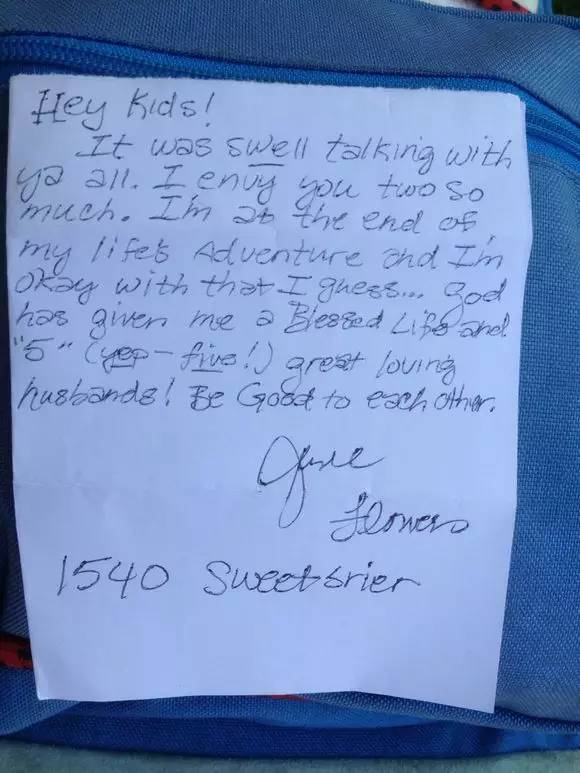 Hey Kids!
It was swell talking with
ya all. I envy you two so
much. I'm at the end of
my life's Adventure and I'm
okay with that I guess... God
has given me a Blessed Life and
"5" (yep - five!) great loving
husbands! Be Good to each other.
June
Flowers
1540 Sweetbrier